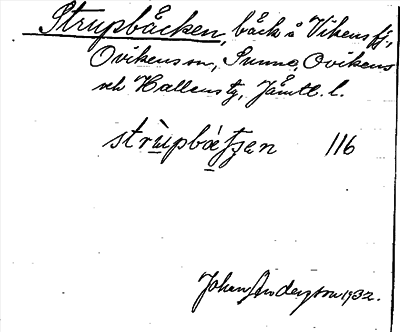 Strupbäcken, bäck å Vikens fj,
Ovikens sn, Sunne, Ovikens
och Hallens tg, Jämtl. l.
strùpbæʃʒen 116
Johan Anderson 1932.